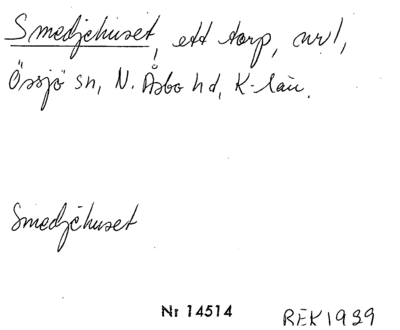 Smedjehuset, ett torp, nr 1,
Össjö sn, N. Åsbo hd, K-län.
Smedjehuset
Nr 14514
REK 1939